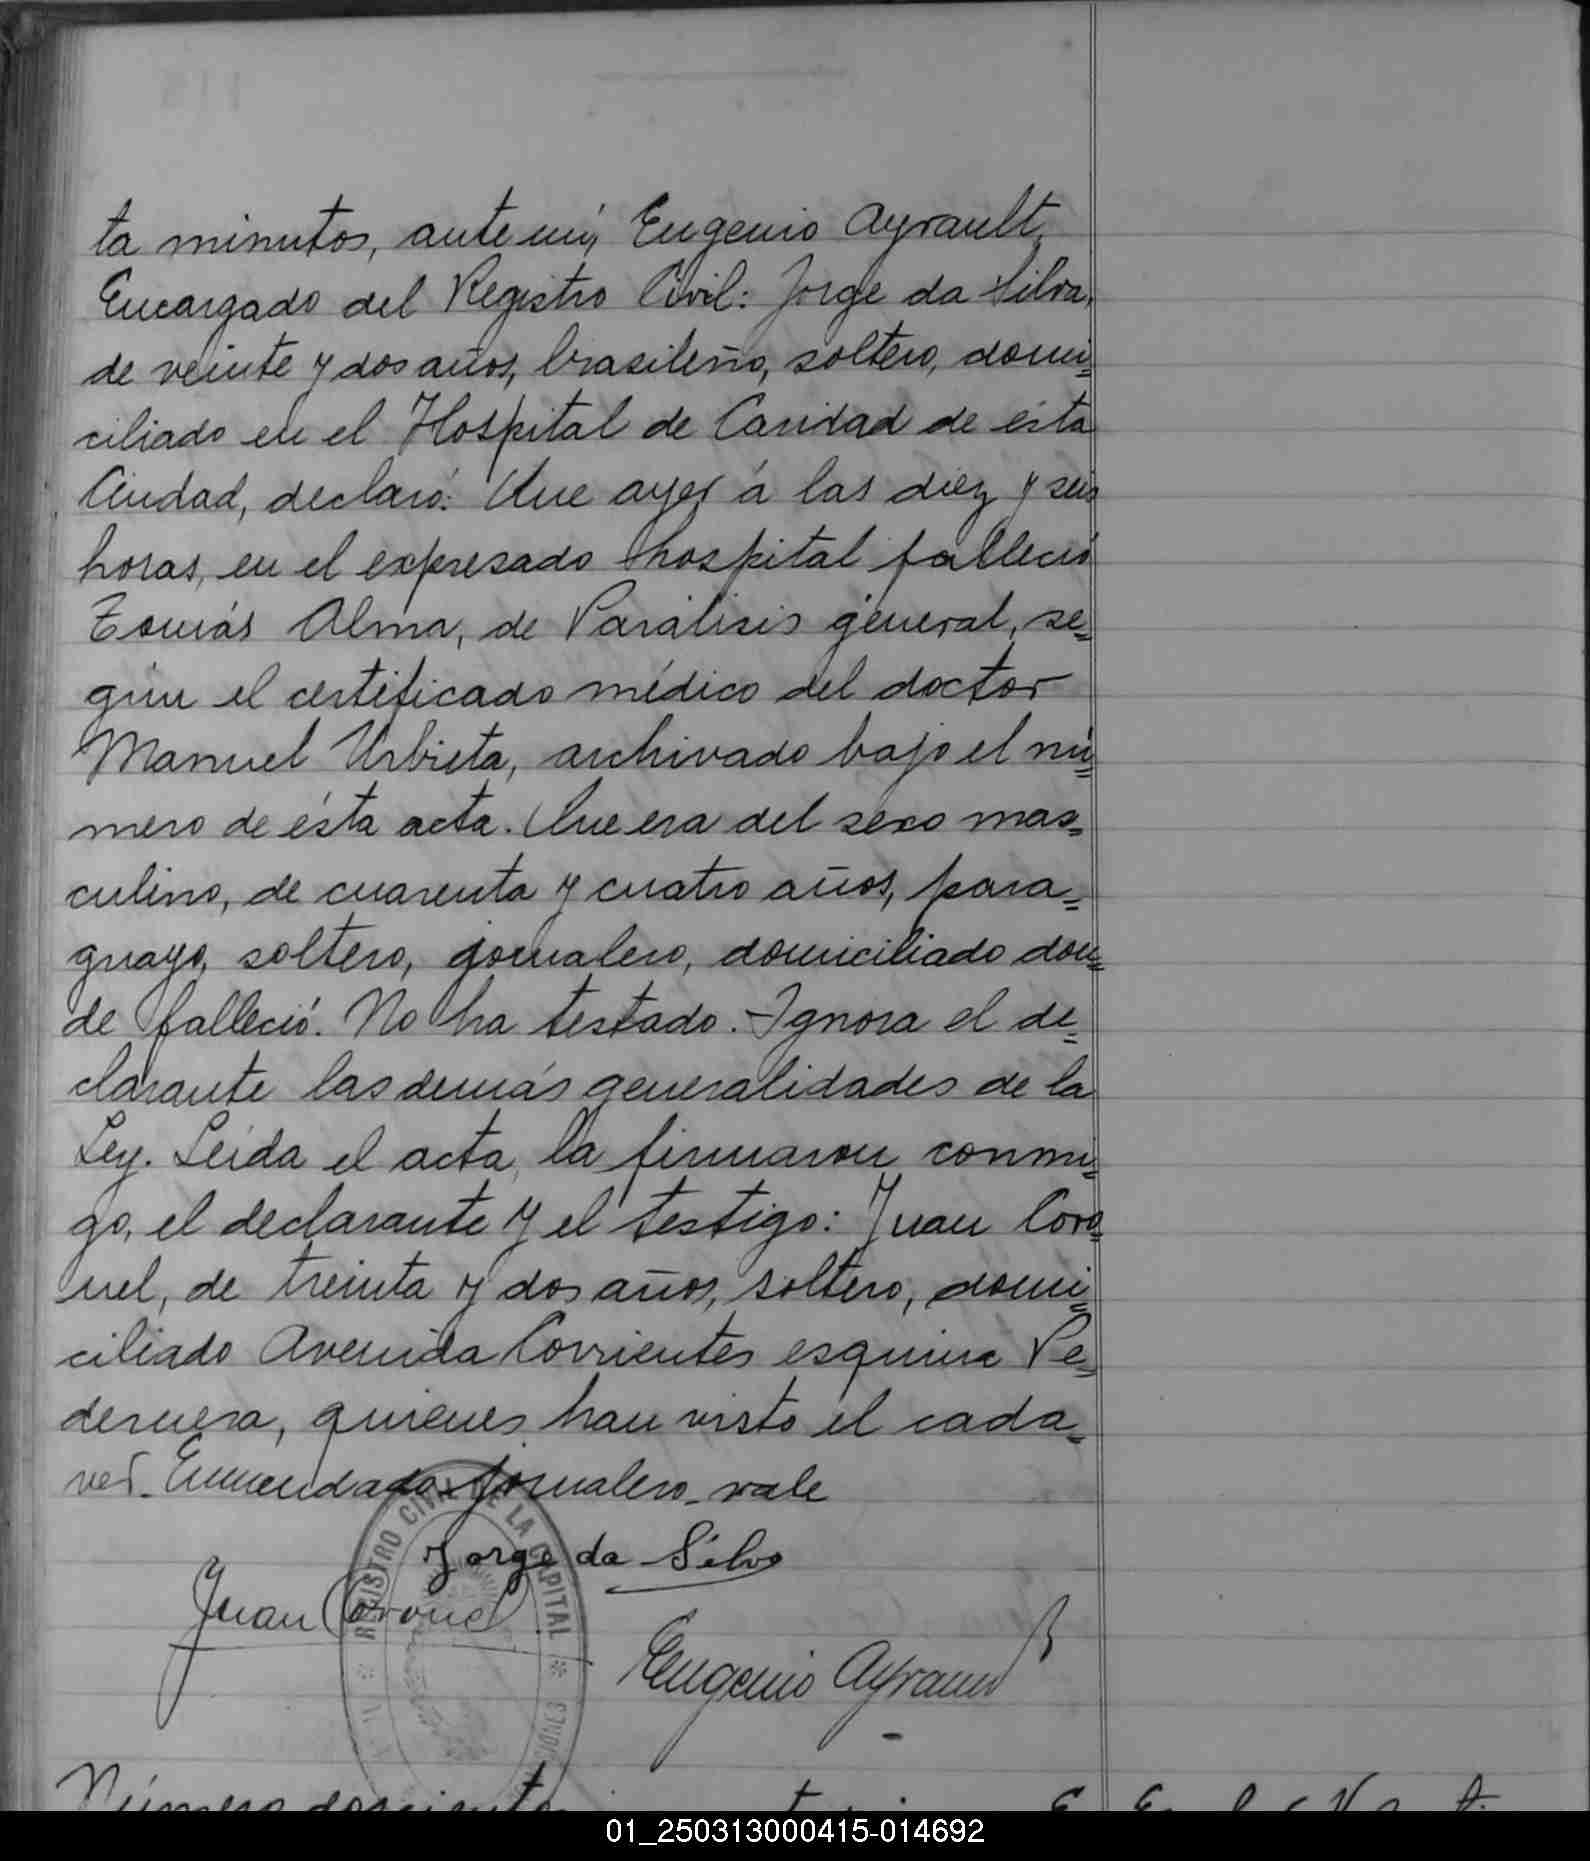 ta minutos, ante mí, Eugenio Ayrault,
Encargado del Registro Civil: Jorge da Silva,
de veinte y dos años, brasileño, soltero, domi=
ciliado en el Hospital de Caridad de ésta
Ciudad, declaró: Que ayer á las diez y seis
horas, en el expresado hospital falleció
Tomás Alma, de Parálisis general, se=
gún el certificado médico del doctor
Manuel Urbieta, archivado bajo el nú=
mero de ésta acta. Que era del sexo mas=
culino, de cuarenta y cuatro años, para=
guayo, soltero, jornalero, domiciliado don=
de falleció. No ha testado. Ignora el de=
clarante las demás generalidades de la
Ley. Leida el acta, la firmaron conmi=
go, el declarante y el testigo: Juan Coro=
nel, de treinta y dos años, soltero, domi=
ciliado Avenida Corrientes esquina Pe=
dernera, quienes han visto el cada=
ver. Enmendado jornalero_vale
Jorge da Silva
Juan Coronel
Eugenio Ayrault
REGISTRO CIVIL DE LA CAPITAL
Número doscientos
01_250313000415-014692